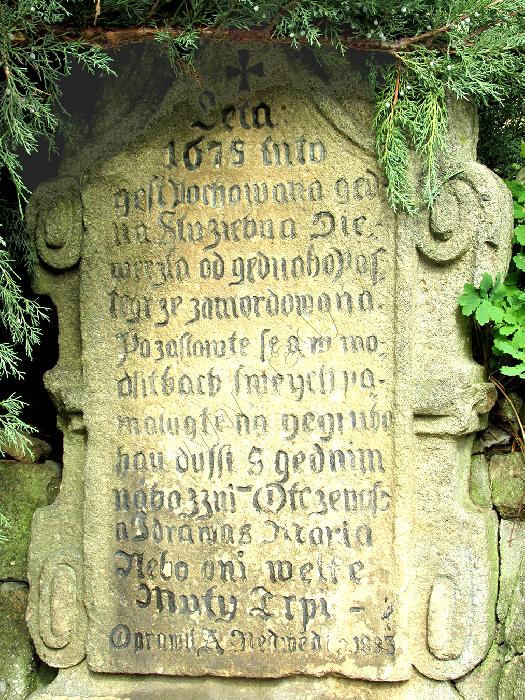 Leta
1675 tuto
gest Pochowana ged
na Sluziebna Die
weczka od gednoho Pas
teyrze zamordowana.
Pozastawte se a w mo-
dlitbach sweych pa-
matugte na gegi ubo
hau dussi S gednim
nábozzni Otczenass
a Zdrawas Maria
Nebo oni welke
Muky Trpi
Oprawil A. Nedwěd 1883